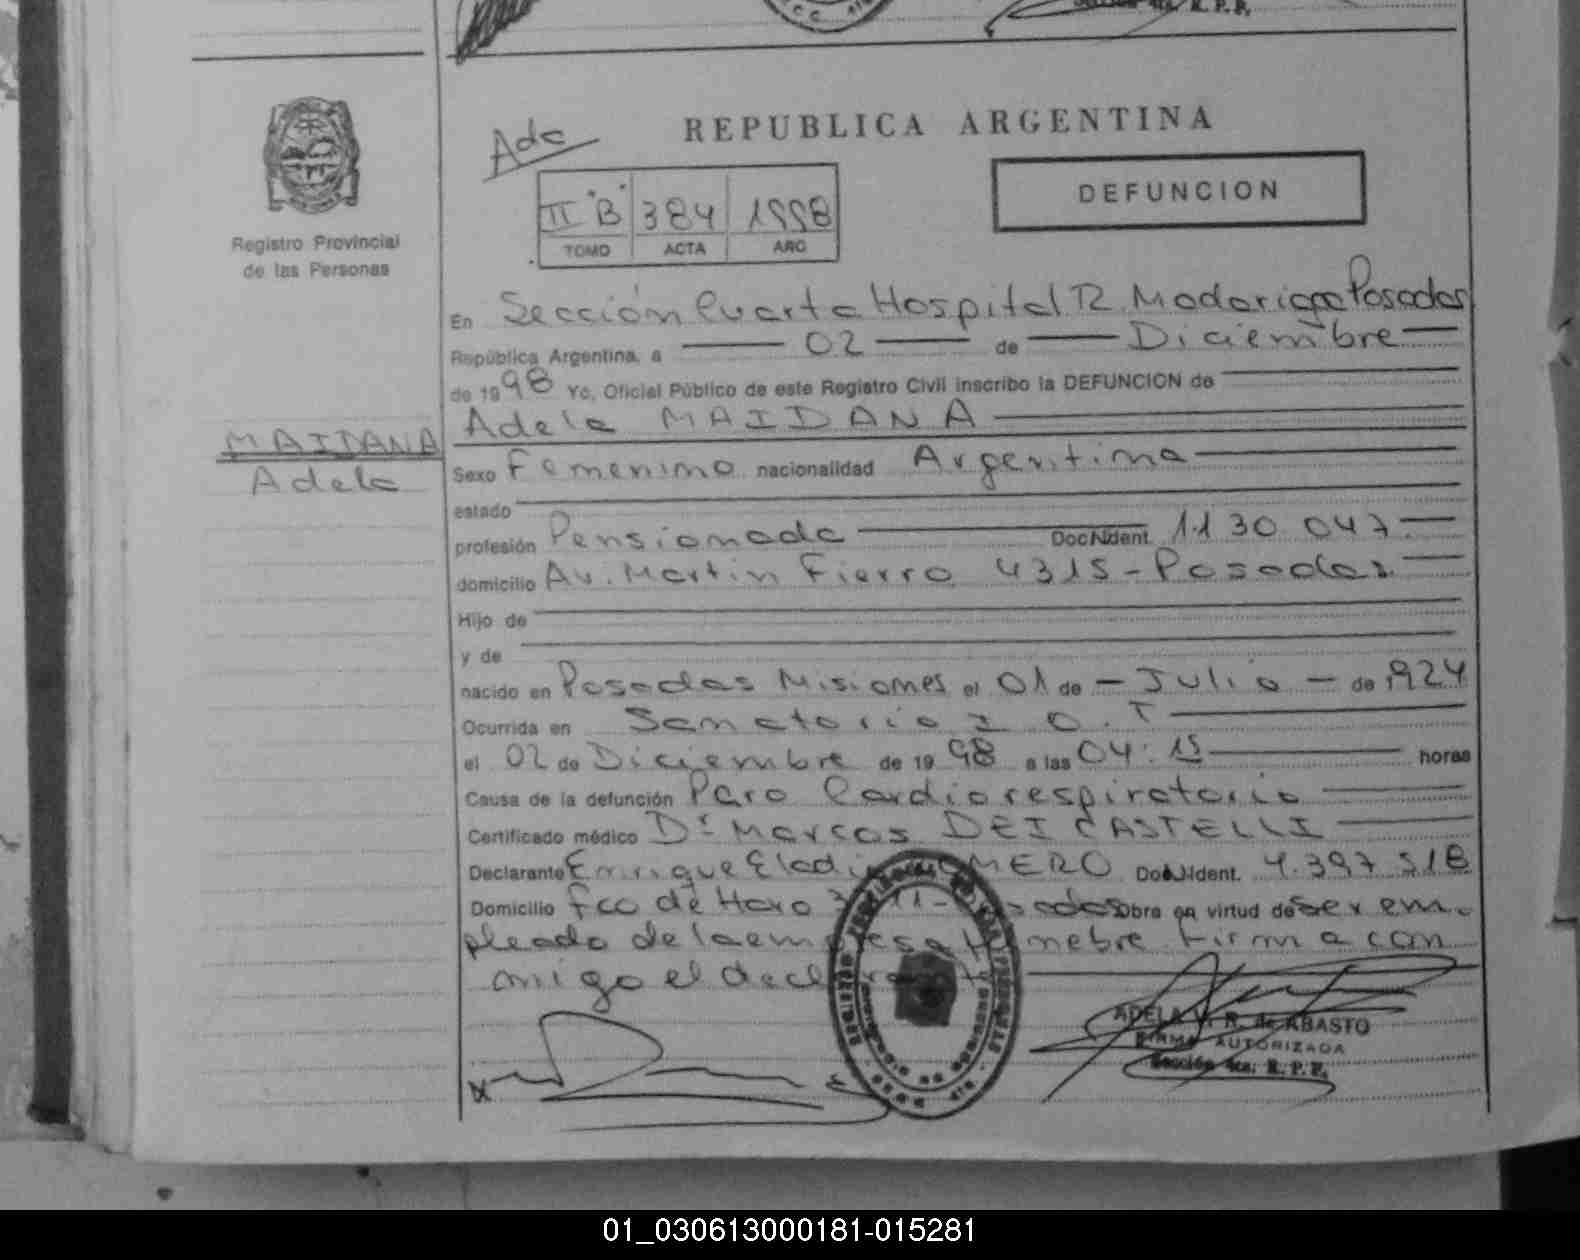 Sección 4ta. R. P. P.
REPUBLICA ARGENTINA
DEFUNCION
II B 384 1998
TOMO ACTA AÑO
Registro Provincial
de las Personas
En Sección Cuarta Hospital R. Madariaga Posadas
República Argentina, a 02 de Diciembre
de 1998 Yo, Oficial Público de este Registro Civil inscribo la DEFUNCION de
Adela MAIDANA
MAIDANA
Adela
Sexo Femenino nacionalidad Argentina
estado
profesión Pensionada Doc. Ident. 1.130.047.
domicilio Av. Martin Fierro 4315 - Posadas.
Hijo de
y de
nacido en Posadas Misiones el 01 de - Julio - de 1924
Ocurrida en Sanatorio I. O. T
el 02 de Diciembre de 1998 a las 04:15 horas
Causa de la defunción Paro Cardiorespiratorio
Certificado médico Dr Marcos DEI CASTELLI
Declarante Enrique Eladio Doc. Ident. 4.397.518
Domicilio Fco de Haro Posadas Obra en virtud de Ser em-
pleado de la empresa Funebre. Firma con
migo el declarante
ADELA V. R. de ABASTO
FIRMA AUTORIZADA
Sección 4ta. R. P. P.
01_030613000181-015281